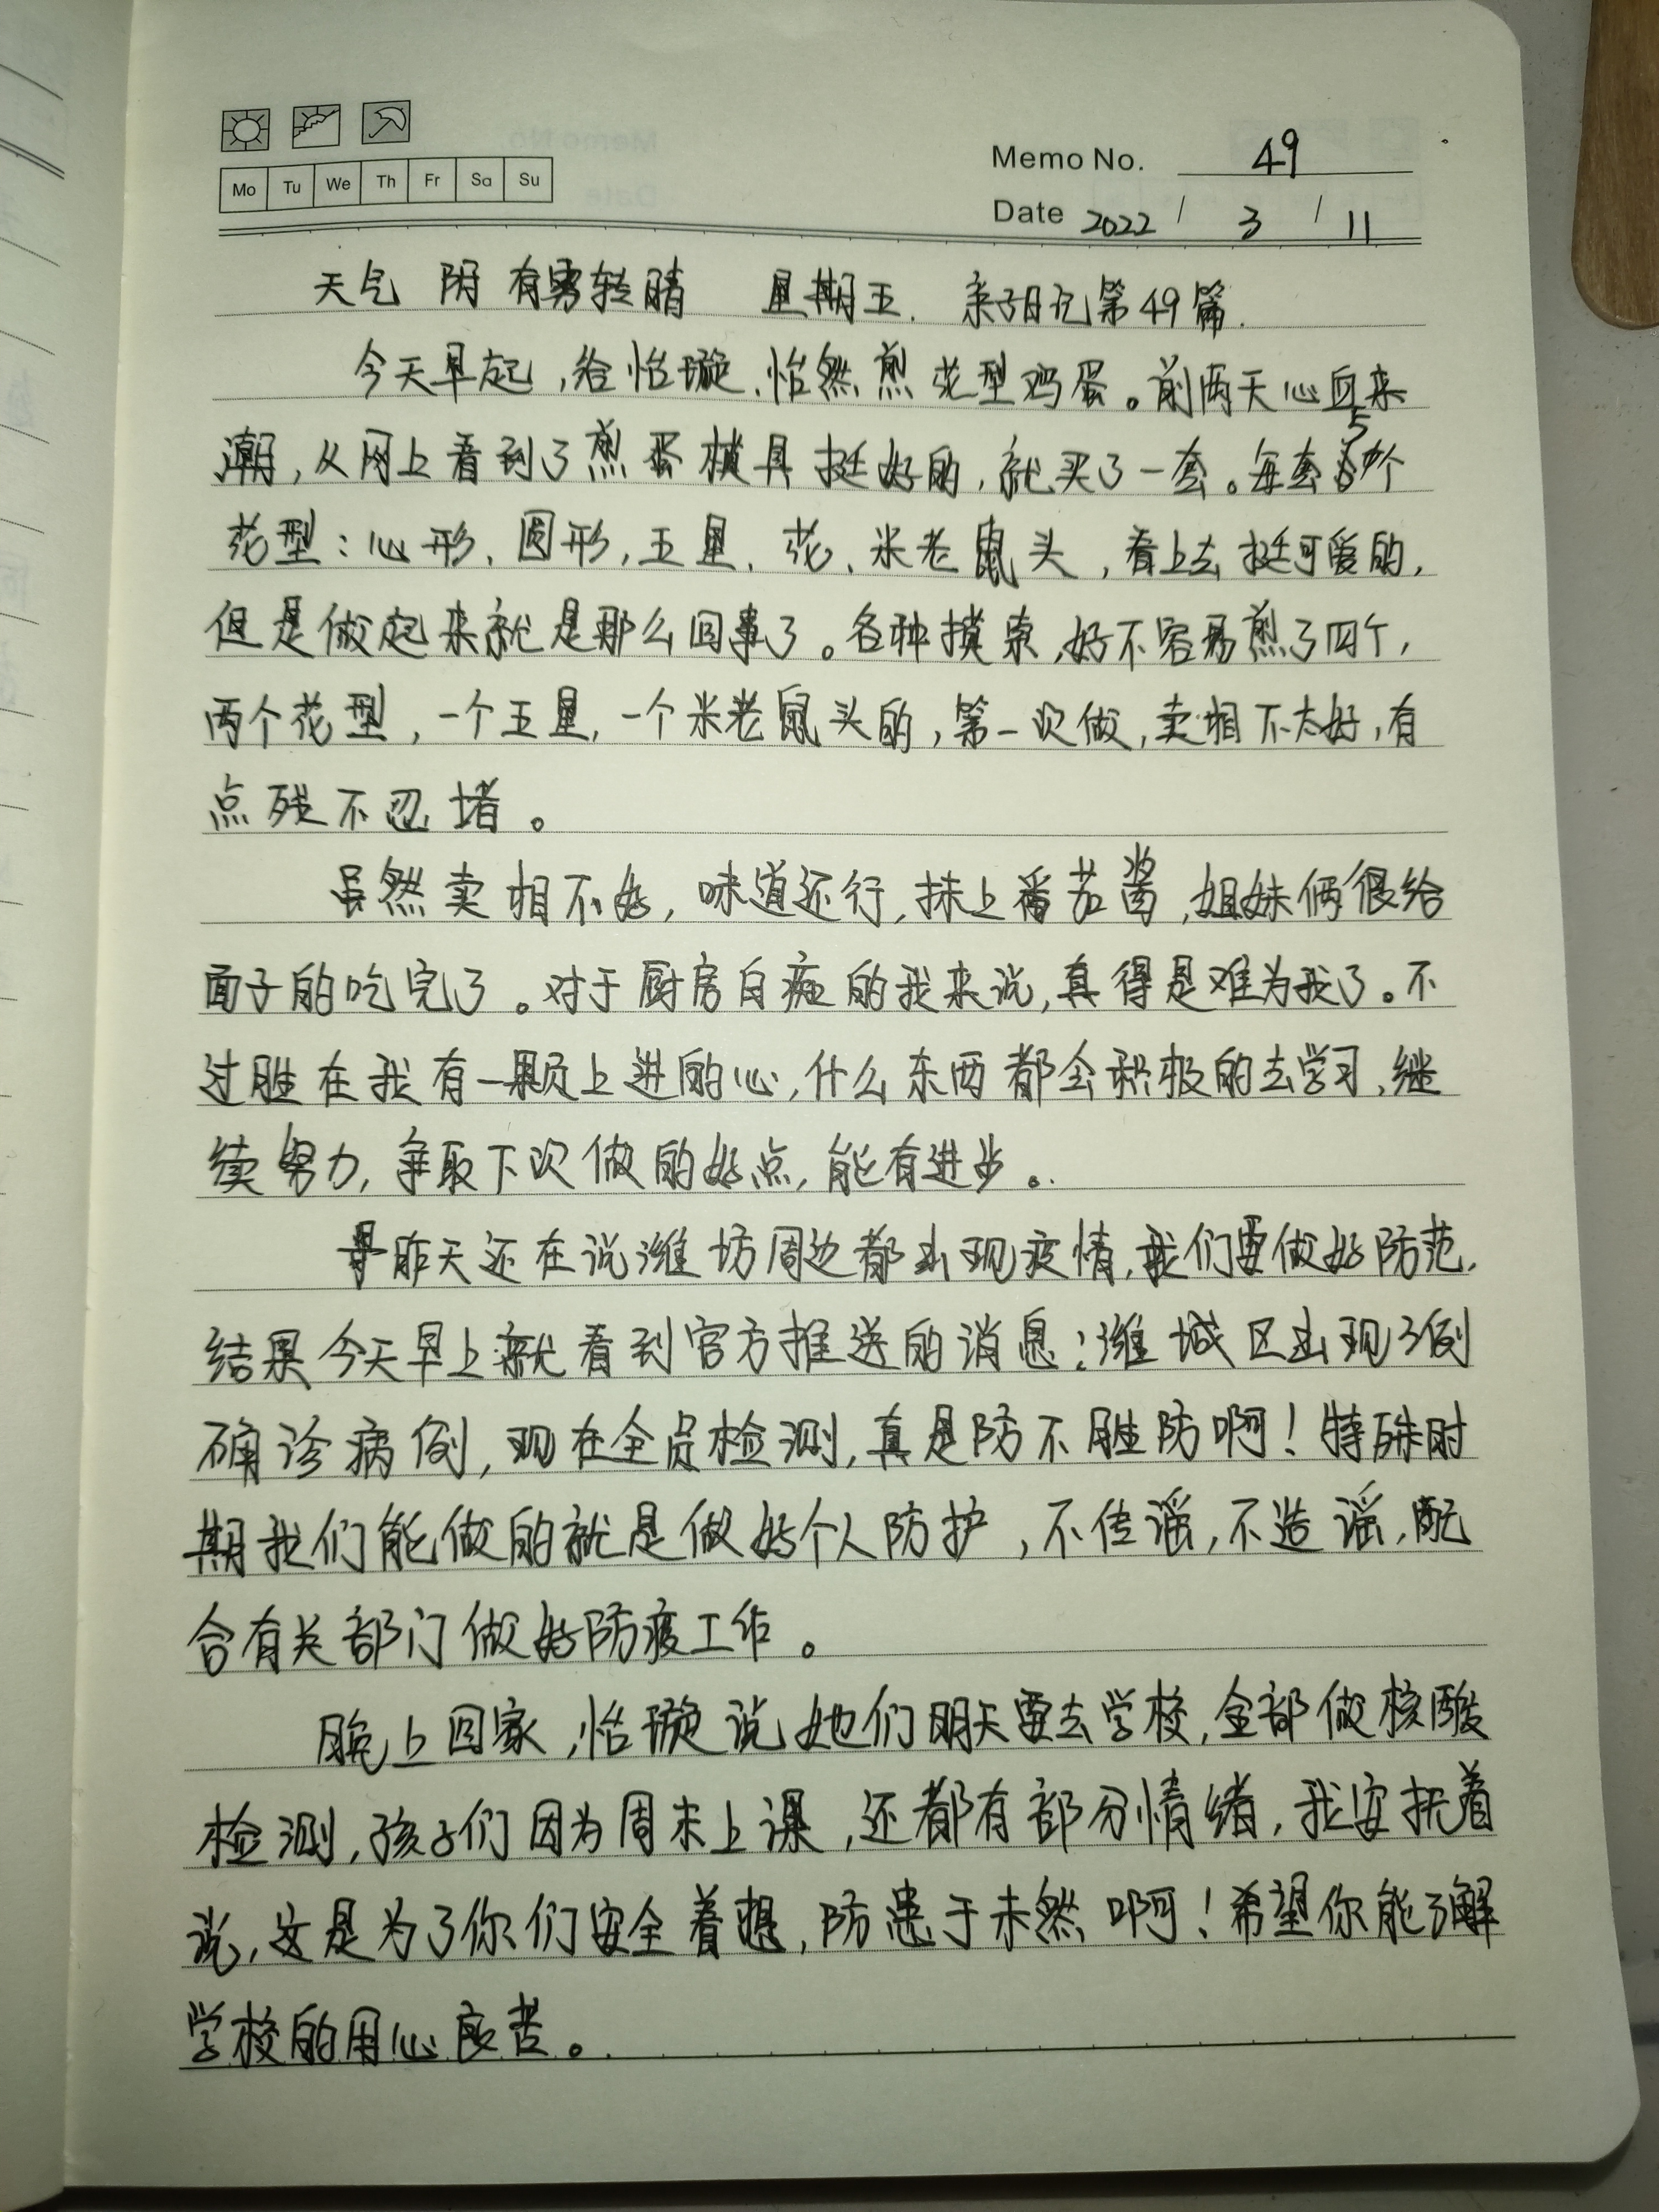 Mo Tu We Th Fr Sa Su
Memo No. 49
Date 2022 / 3 / 11
天气 阴 有雾转晴 星期五. 亲子日记第49篇.
今天早起,给怡璇、怡然煎花型鸡蛋。前两天心血来
潮,从网上看到了煎蛋模具挺好的,就买了一套。每套5个
花型:心形、圆形,五星、花、米老鼠头,看上去挺可爱的,
但是做起来就是那么回事了。各种摸索,好不容易煎了四个,
两个花型,一个五星,一个米老鼠头的,第一次做,卖相不太好,有
点残不忍堵。
虽然卖相不好,味道还行,抹上番茄酱,姐妹俩很给
面子的吃完了。对于厨房白痴的我来说,真得是难为我了。不
过胜在我有一颗上进的心,什么东西都会积极的去学习,继
续努力,争取下次做的好点,能有进步。
昨天还在说潍坊周边都出现疫情,我们要做好防范,
结果今天早上就看到官方推送的消息:潍城区出现3例
确诊病例,现在全员检测,真是防不胜防啊!特殊时
期我们能做的就是做好个人防护,不传谣,不造谣,配
合有关部门做好防疫工作。
晚上回家,怡璇说她们明天要去学校,全部做核酸
检测,孩子们因为周末上课,还都有部分情绪,我安抚着
说,这是为了你们安全着想,防患于未然啊!希望你能了解
学校的用心良苦。